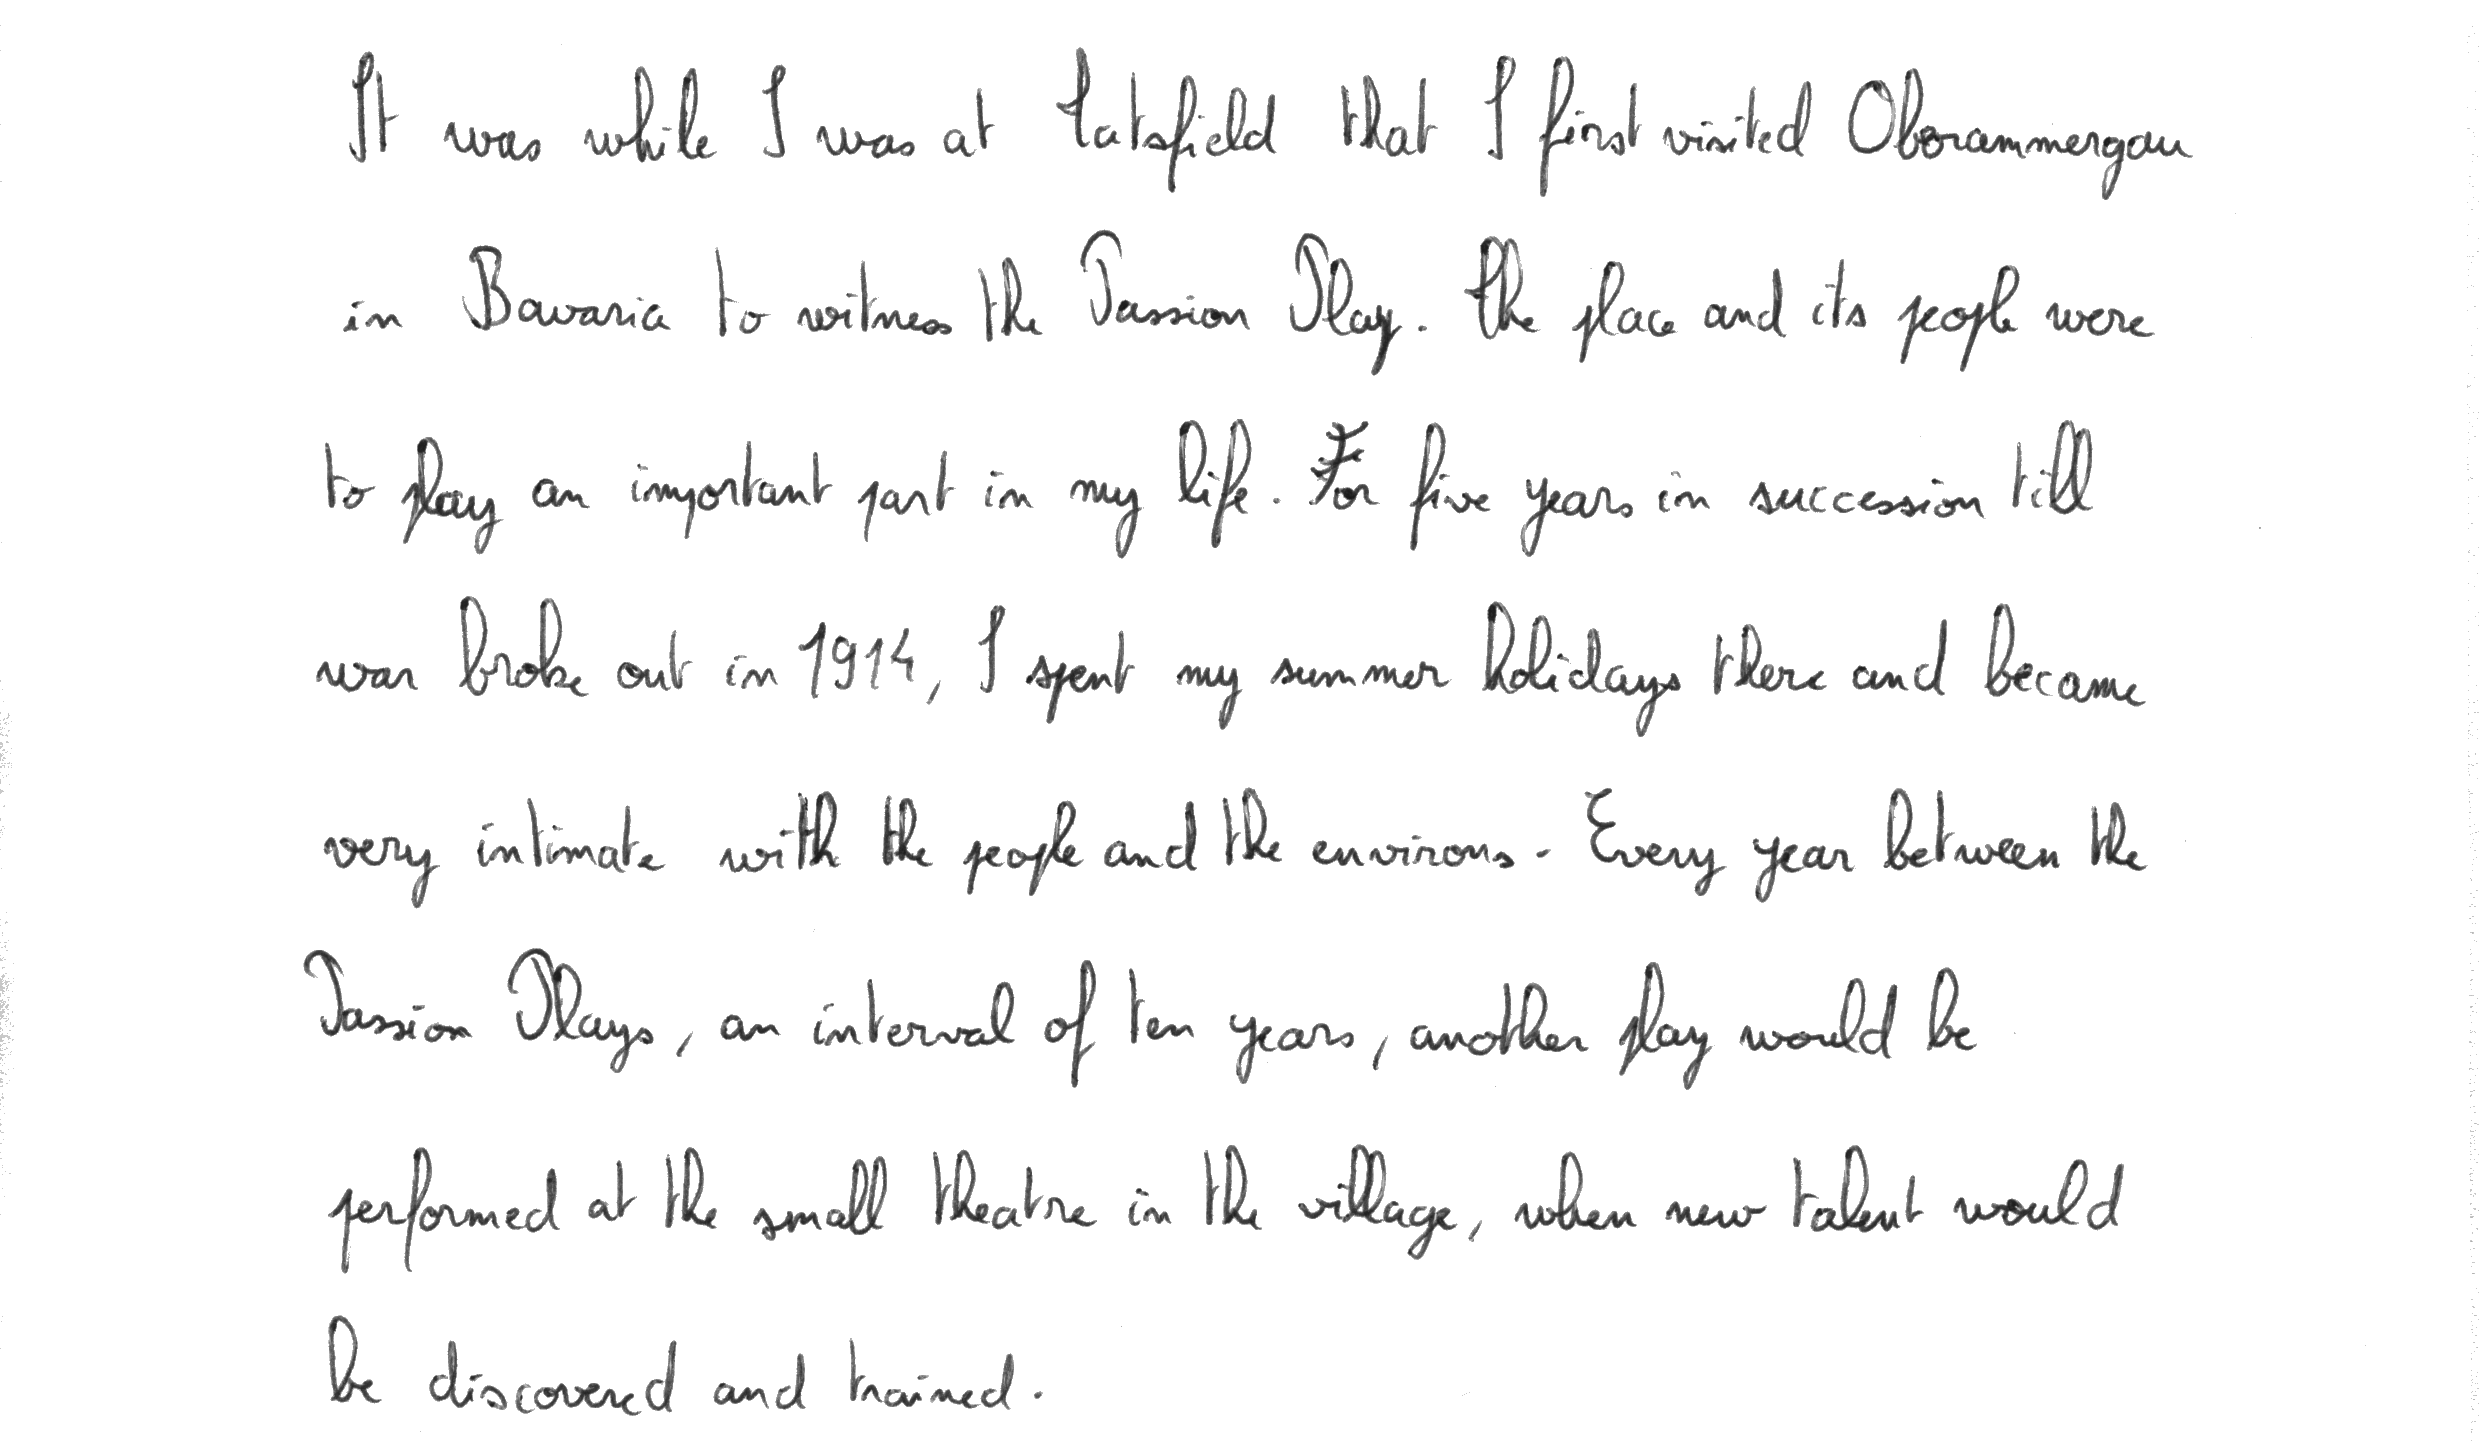 It was while I was at Tatsfield that I first visited Oborammergau
in Bavaria to witness the Passion Play. The place and its people were
to play an important part in my life. For five years in succession till
war broke out in 1914, I spent my summer holidays there and became
very intimate with the people and the environs. Every year between the
Passion Plays, an interval of ten years, another play would be
performed at the small theatre in the village, when new talent would
be discovered and trained.